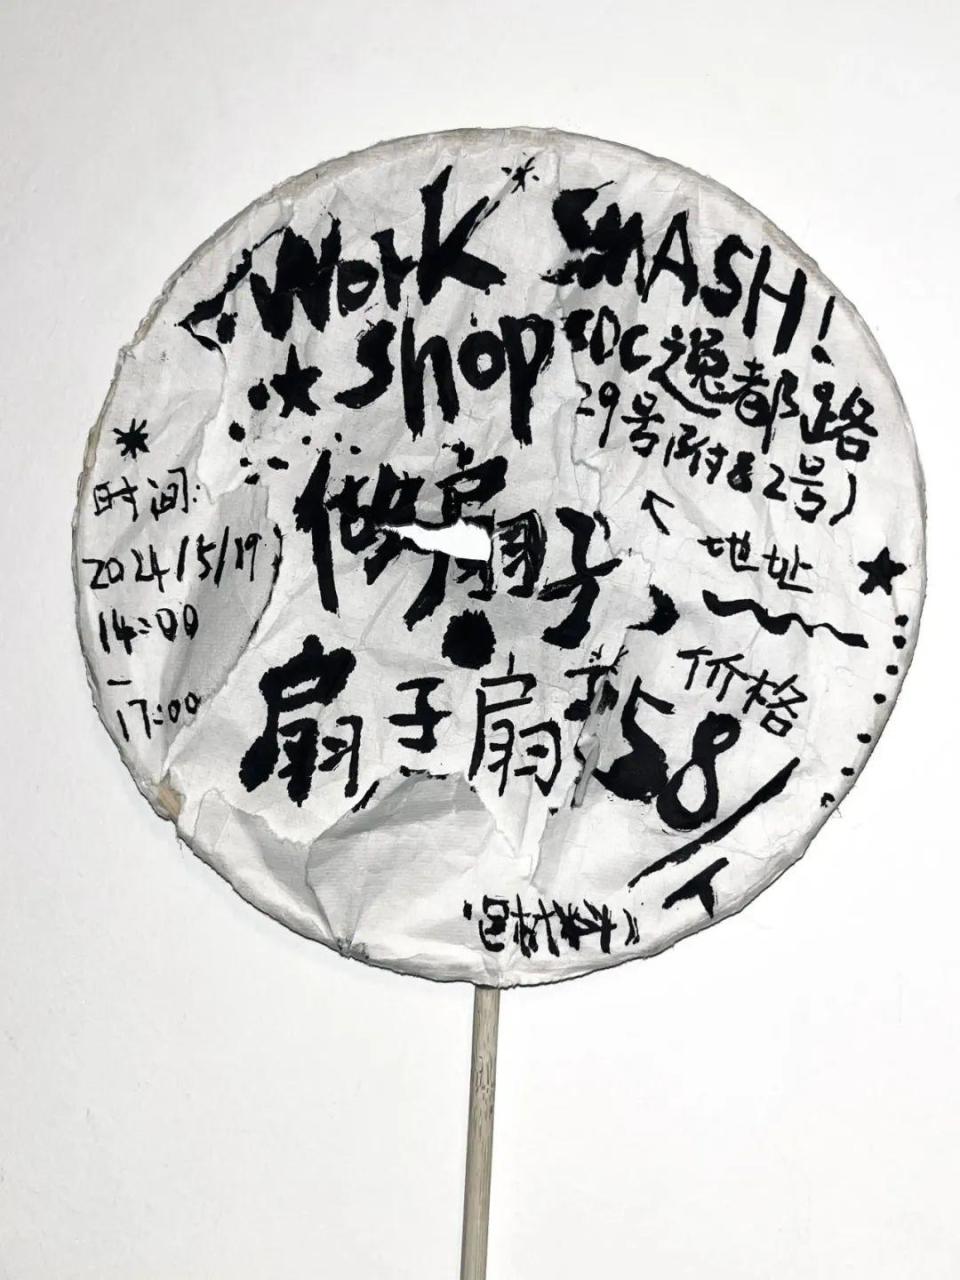 Work
shop
SMASH!
SDC逸都路
29号附2号)
地址
时间:
2024/5/19
14:00
-
17:00
做扇子、
扇子扇
价格
58/人
包材料